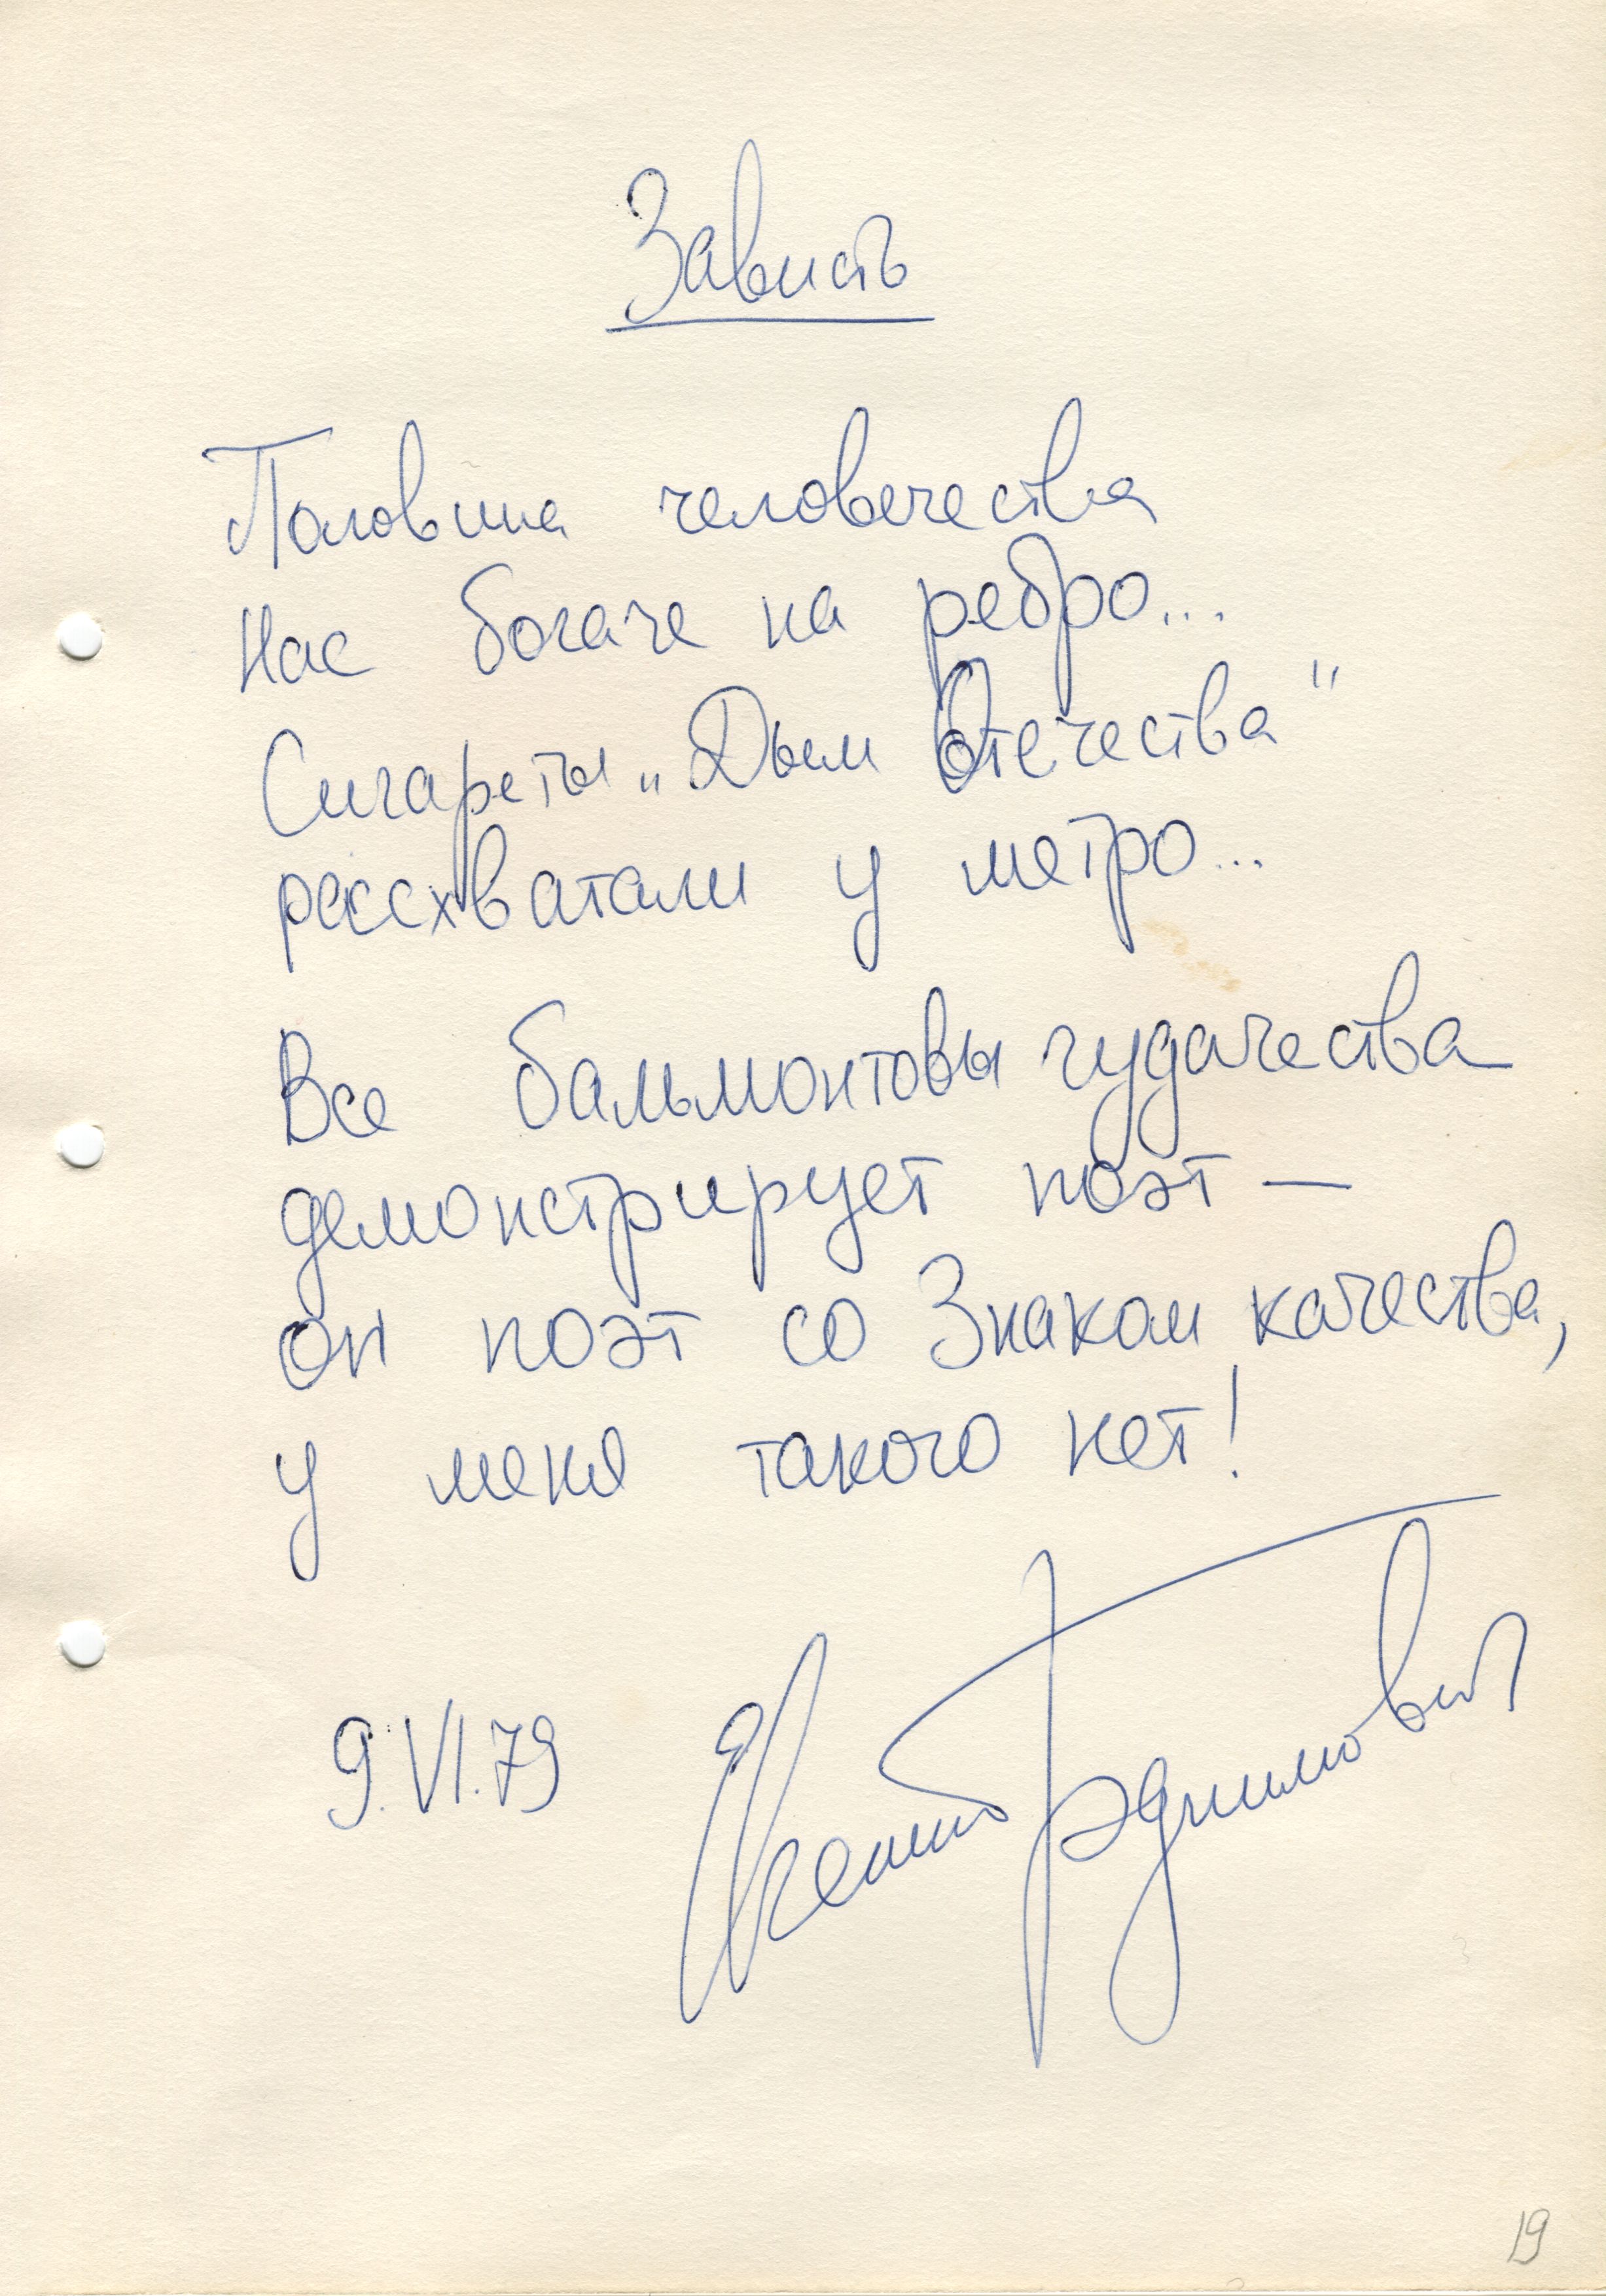 Зависть
Половина человечества
Нас богаче на ребро...
Сигареты „Дым Отечества"
рассхватали у метро...
Все бальмонтовы чудачества
демонстрирует поэт —
он поэт со Знаком качества,
у меня такого нет!
9.VI.79
Евгений Бунимович
19